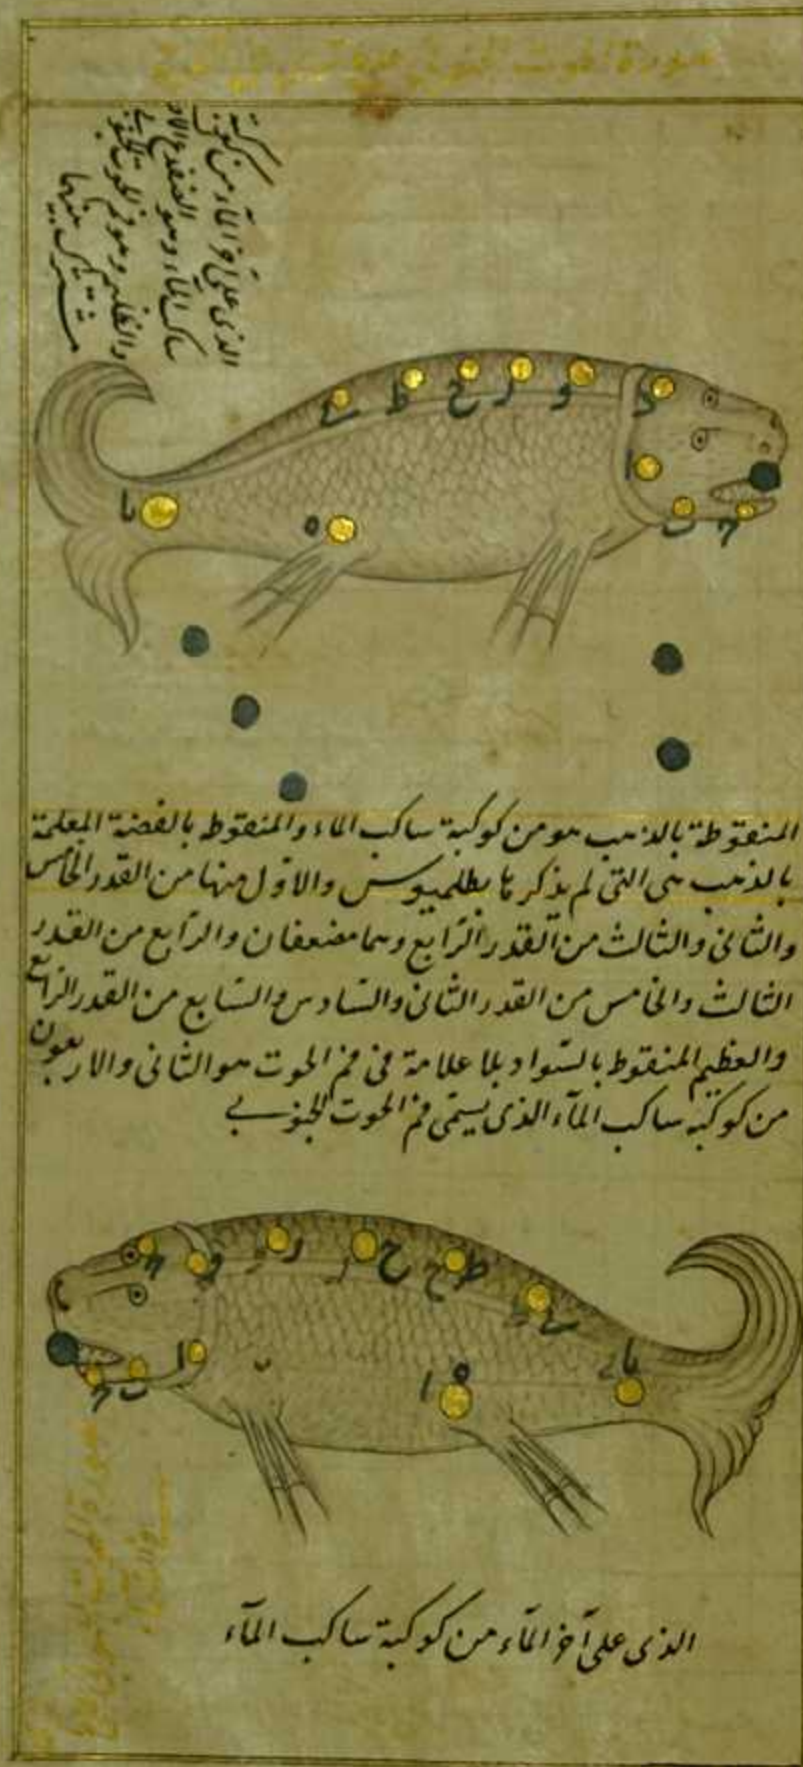 صورة الحوت الجنوبي على ما يرى في الكرة
كوكبة
الذى على آخر المآء من كوكبة
ساكب المآء وهو الضفدع الاول
والظليم وهو فم الحوت الجنوبى
مشترك بينهما
د و ز ح ط ى
ا
ب ج
ه يا
المنقوطة بالذهب هو من كوكبة ساكب الماء والمنقوط بالفضة المعلمة
بالذهب هى التى لم يذكرها بطلميوس والاول منها من القدر الخامس
والثانى والثالث من القدر الرابع وهما مضعفان والرابع من القدر
الثالث والخامس من القدر الثانى والسادس والسابع من القدر الرابع
والعظيم المنقوط بالسواد بلا علامة فى فم الحوت هو الثانى والاربعون
من كوكبة ساكب المآء الذى يسمى فم الحوت الجنوبى
د و ز ح ط ى
يا
ا ه
ب ج
صورة الحوت الجنوبى على
الذى على آخر المآء من كوكبة ساكب المآء